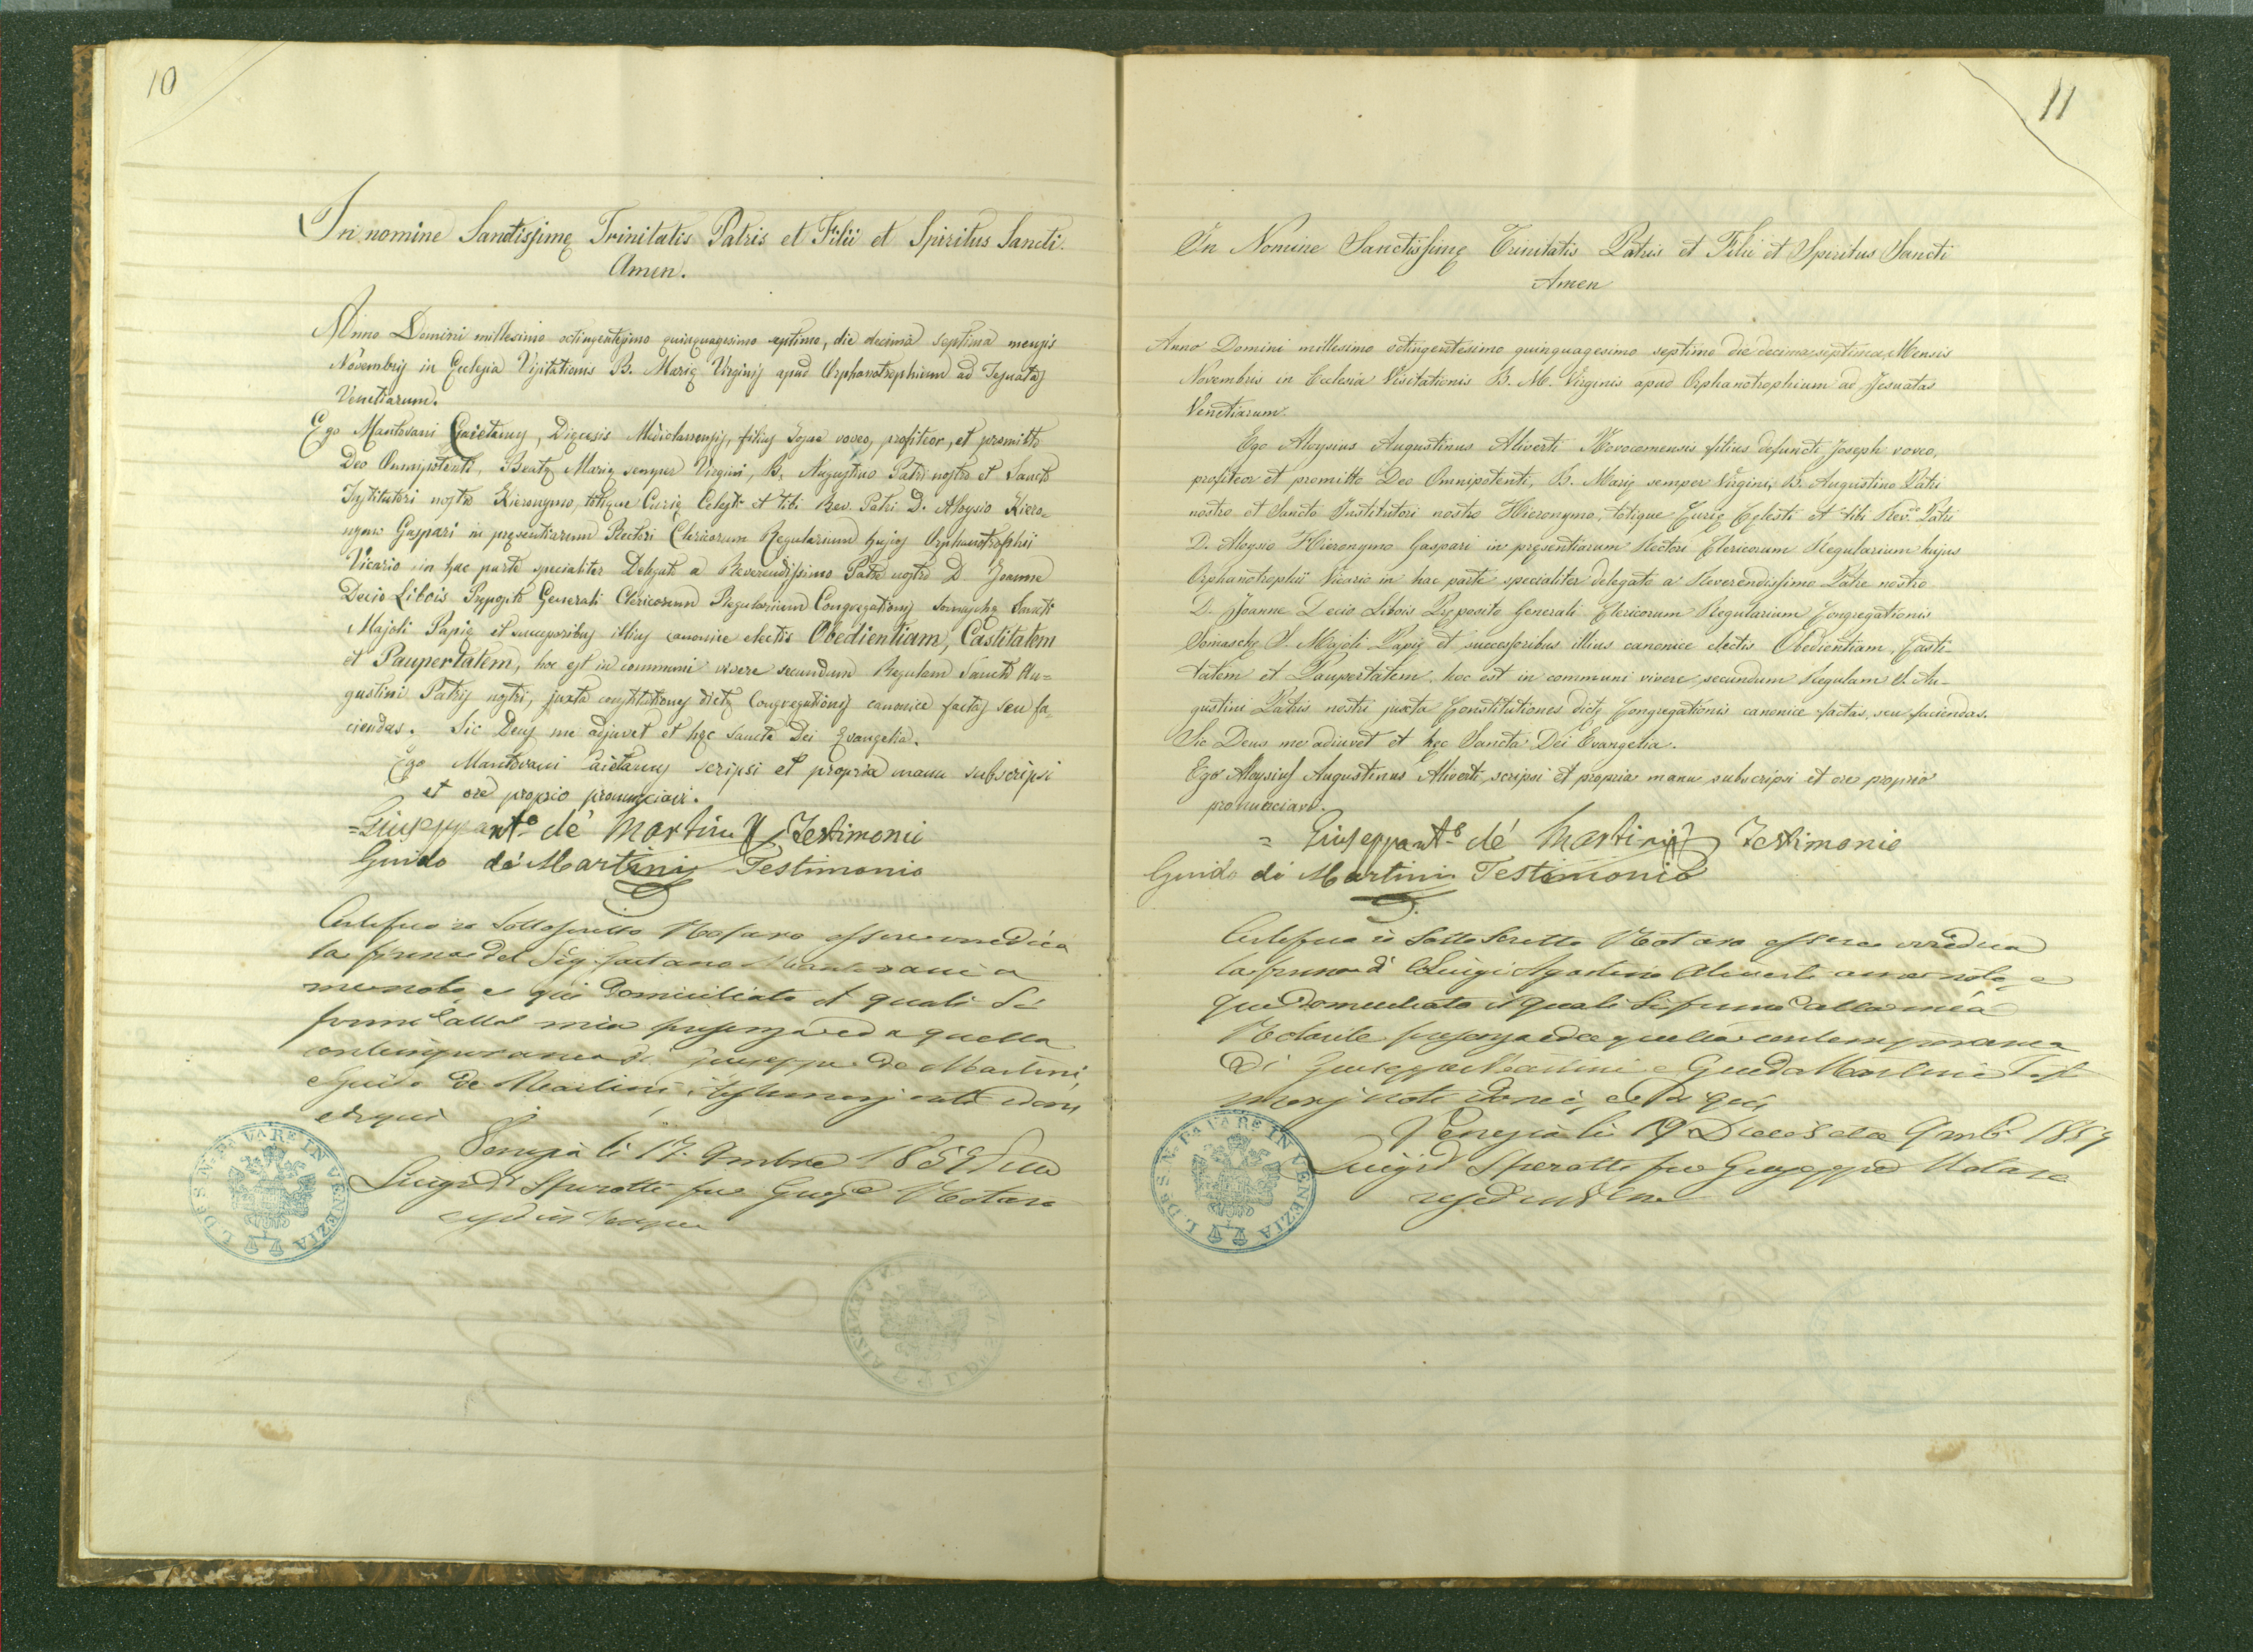 10
In nomine Sanctissimę Trinitatis Patris et Filii et Spiritus Sancti.
Amen.
Anno Domini millesimo octingentesimo quinquagesimo septimo, die decima septima mensis
Novembris in Ecclesia Visitationis B. Marię Virginis apud Orphanotrophium ad Jesuatas
Venetiarum.
Ego Mantovani Gaietanus, Dięcesis Mediolanensis, filius voveo, profiteor, et promitto
Deo Omnipotenti, Beatę Marię semper Virgini, B. Augustino Patri nostro et Sancto
Institutori nostro Hieronymo, totique Curię Celesti et tibi Rev. Patri D. Aloysio Hiero=
nymo Gaspari in pręsentiarum Rectori Clericorum Regularium hujus Orphanotrophii
Vicario in hac parte specialiter Delegato a Reverendissimo Patre nostro D. Joanne
Decio Libois Pręposito Generali Clericorum Regularium Congregationis Somaschę Sancti
Majoli Papię et successoribus illius canonice electis Obedientiam, Castitatem
et Paupertatem, hoc est in communi vivere secundum Regulam Sancti Au=
gustini Patris nostri, juxta constitutiones dictę Congregationis canonice factas seu fa=
ciendas. Sic Deus me adjuvet et hęc Sancta Dei Evangelia.
Ego Mantovani Caietanus scripsi et propria manu subscripsi
et ore proprio pronunciavi.
=Giuseppant.o dé Martini Testimonio
Guido de Martini Testimonio
Certifico io Sottoscritto Notaro essere veridica
la firma del Sig. Gaetano Mantovani a
me noto, e qui domiciliato il quale si
firmò alla mia presenza ed a quella
contemporanea di Giuseppe de Martini,
e Guido de Martini, testimonj noti idonei
e di qui
Venezia li 17. 9mbre
Luigi Sperotti fu Notaro
L. DE S. N. PAVARE IN VENEZIA
11
In Nomine Sanctissimę Trinitatis Patris et Filii et Spiritus Sancti
Amen
Anno Domini millesimo octingentesimo quinquagesimo septimo die decima septima Mensis
Novembris in Ecclesia Visitationis B. M. Virginis apud Orphanotrophium ad Jesuatas
Venetiarum.
Ego Aloysius Augustinus Aliverti Novocomensis filius defuncti Joseph voveo,
profiteor et promitto Deo Omnipotenti, B. Marię semper Virgini, B. Augustino Patri
nostro et Sancto Institutori nostro Hieronymo, totique Curię Cęlesti et tibi Rev.do Patri
D. Aloysio Hieronymo Gaspari in pręsentiarum Rectori Clericorum Regularium hujus
Orphanotrophii Vicario in hac parte specialiter delegato a Reverendissimo Patre nostro
D. Joanne Decio Libois Pręposito Generali Clericorum Regularium Congregationis
Somaschę S. Majoli Papię et successoribus illius canonice electis Obedientiam, Casti-
tatem et Paupertatem, hoc est in communi vivere secundum Regulam S. Au-
gustini Patris nostri juxta Constitutiones dictę Congregationis canonice factas, seu faciendas.
Sic Deus me adiuvet et hęc Sancta Dei Evangelia.
Ego Aloysius Augustinus Aliverti scripsi et propria manu subscripsi et ore proprio
pronunciavi.
= Giuseppant.o dé Martini Testimonio
Guido dé Martini Testimonio
Certifico io Sottoscritto Notaro essere veridica
la firma di Luigi Agostino Aliverti a me noto, e
qui domiciliato il quale si firmò alla mia
presenza ed a quella contemporanea
di Giuseppe Martini e Guido Martini Testi
monj noti idonei, e di qui,
Venezia li 9mb.
Luigi Sperotti fu Giuseppe Notaro
L. DE S. N. PAVARE IN VENEZIA